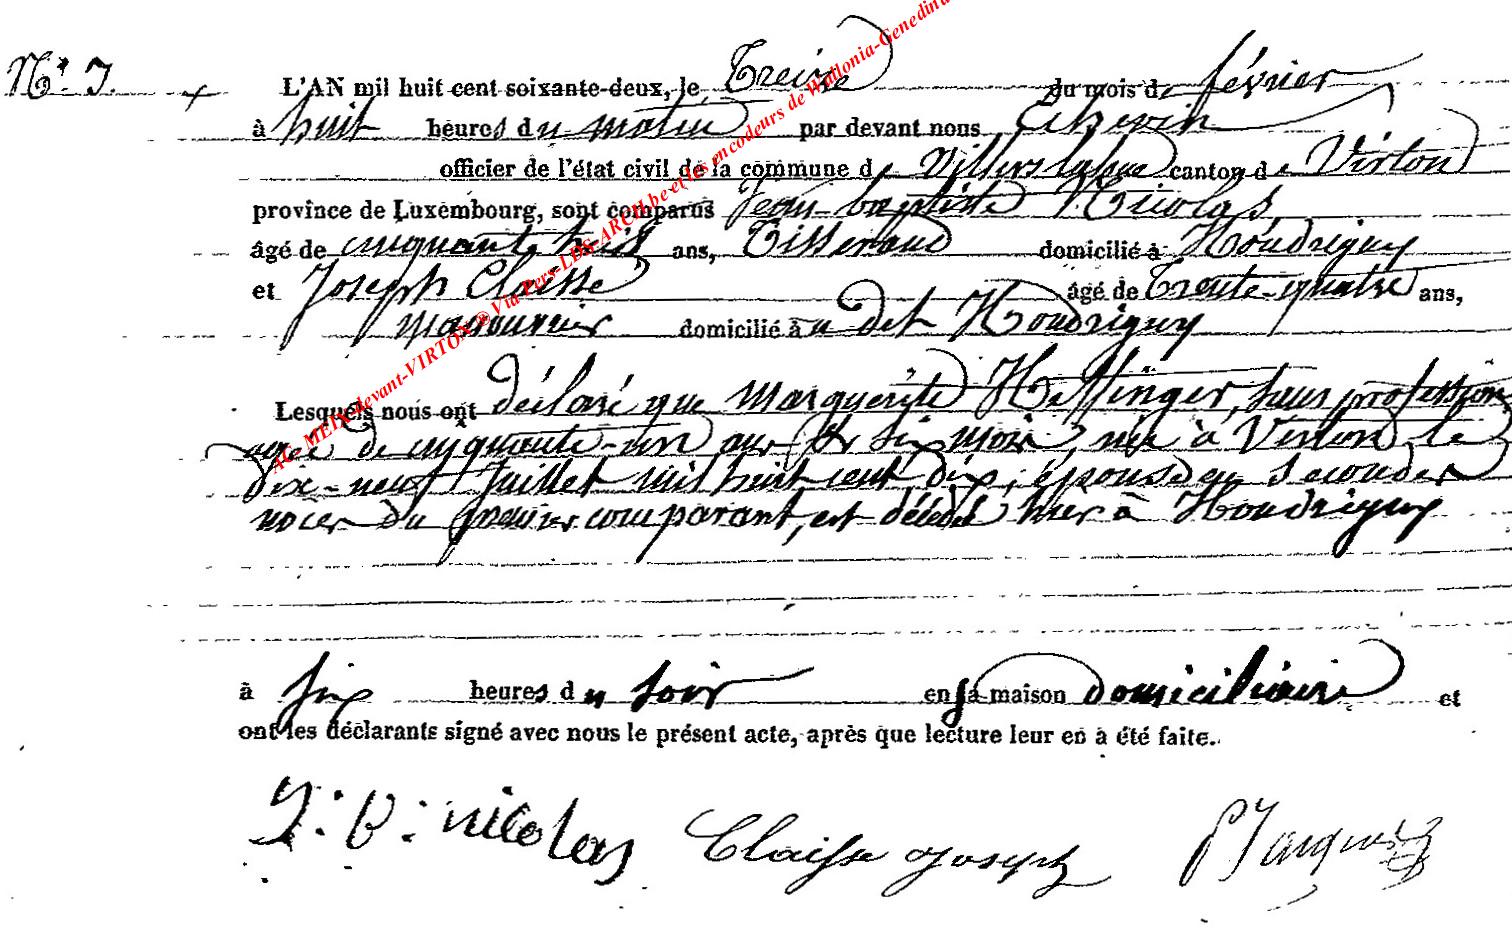 N° 7. L'AN mil huit cent soixante-deux, le Treize du mois de février
à huit heures du matin par devant nous Echevin
officier de l'état civil de la commune de Villers laloue canton de Virton
province de Luxembourg, sont comparus Jean-baptiste Nicolas,
âgé de cinquante huit ans, Tisserand domicilié à Houdrigny
et Joseph Claisse âgé de Trente-quatre ans,
manouvrier domicilié à u dit Houdrigny
Lesquels nous ont déclaré que Marguerite Hessinger, sans profession
agée de cinquante-un ans & six mois, née à Virton le
dix-neuf Juillet mil huit cent dix, épouse en secondes
noces du premier comparant, est décédée hier à Houdrigny
à six heures du soir en sa maison domiciliaire et
ont les déclarants signé avec nous le présent acte, après que lecture leur en à été faite.
J: B: nicolas Claisse Joseph
AC-MEIX-devant-VIRTON ® Via Pers-LDS-ARCH.be et les encodeurs de Wallonia-Genedina